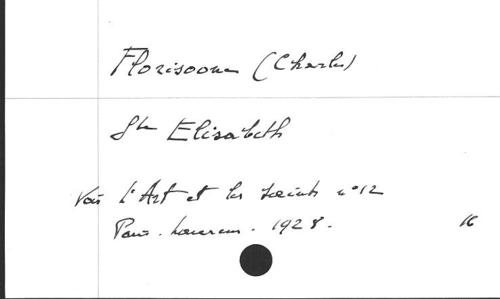 Florisoone (Charles)
Ste Elisabeth
Voir L'Art et les Saints n°12
Paris. Laurens. 1928. 16